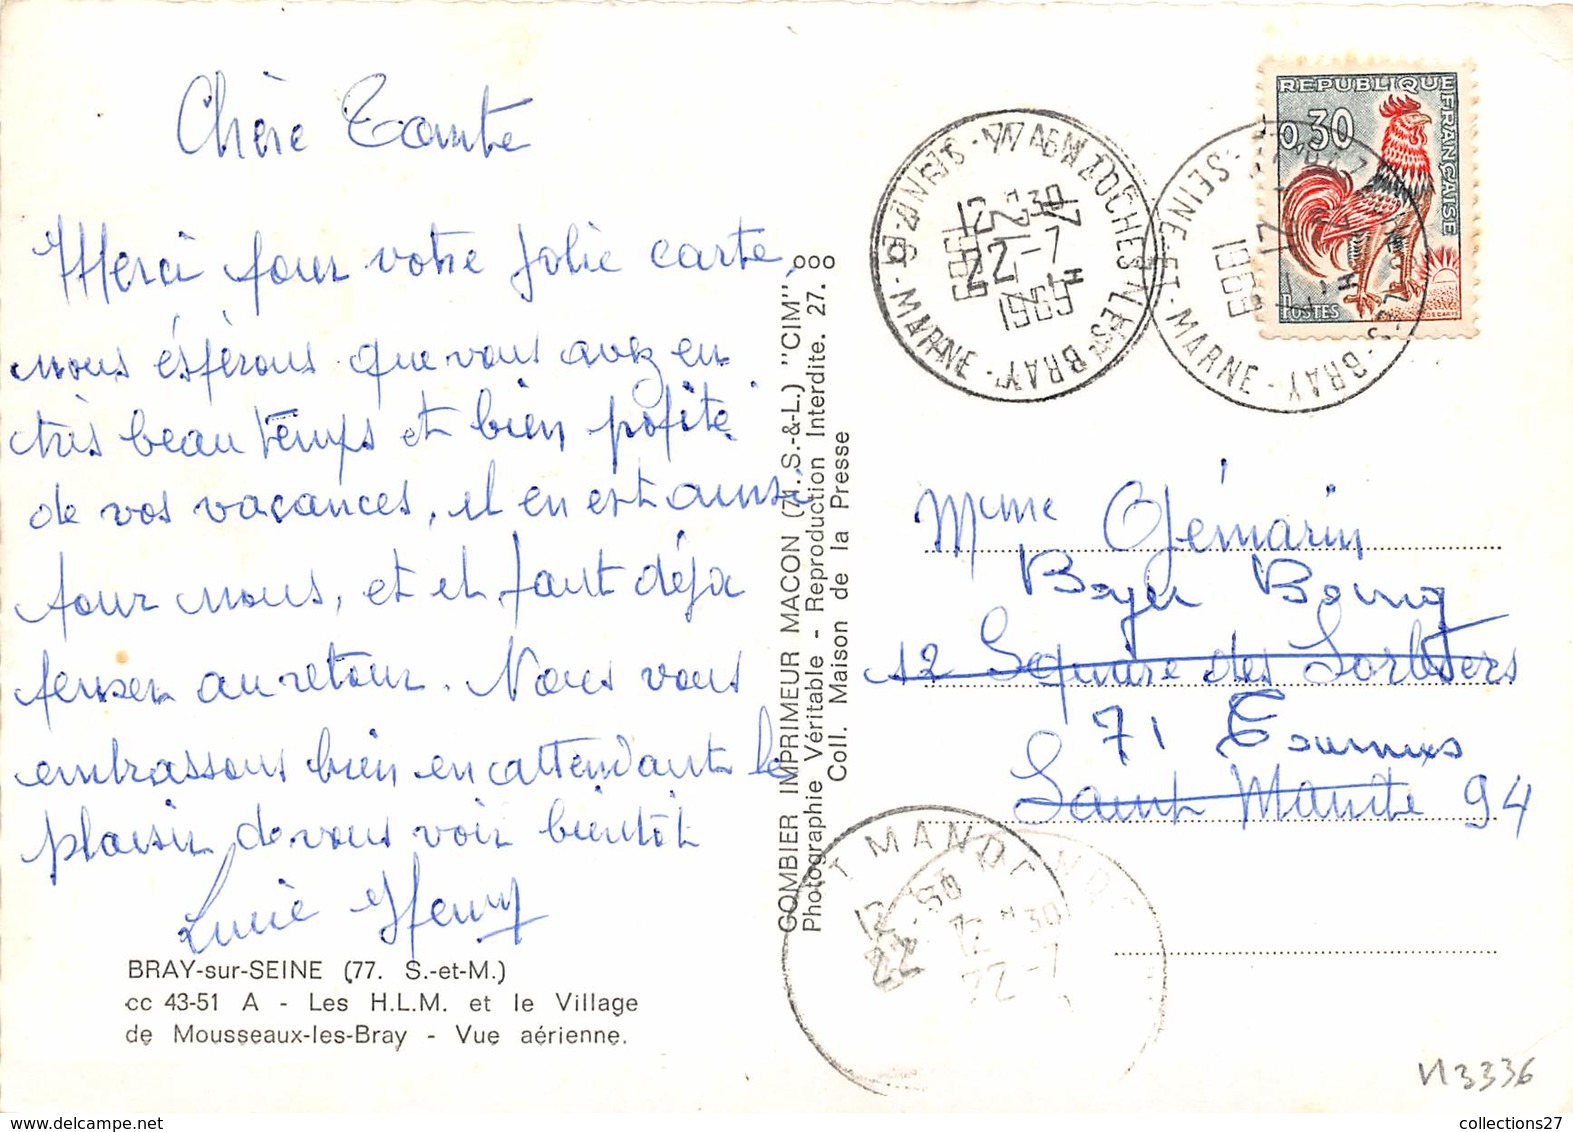 Chère Tante
Merci pour votre jolie carte,
nous éspérons que vous avez eu
très beau temps et bien pofité
de vos vacances, il en est ainsi
pour nous, et il faut déjà
penser au retour. Nous vous
embrassons bien en attendant le
plaisir de vous voir bientôt
Lucie Henry
BRAY-sur-SEINE (77. S.-et-M.)
cc 43-51 A - Les H.L.M. et le Village
de Mousseaux-les-Bray - Vue aérienne.
GOMBIER IMPRIMEUR MACON (71.S.-&-L.) "CIM"
Photographie Véritable - Reproduction Interdite. 27. ooo
Coll. Maison de la Presse
REPUBLIQUE FRANÇAISE
0,30
POSTES
SEINE-ET-MARNE - BRAY
22-7
1969
Mme Gémarin
Boyer
12 Square des Sorbiers
71 Tournus
Saint Mandé 94
ST MANDE
12 H 30
22-7
N3336
collections27